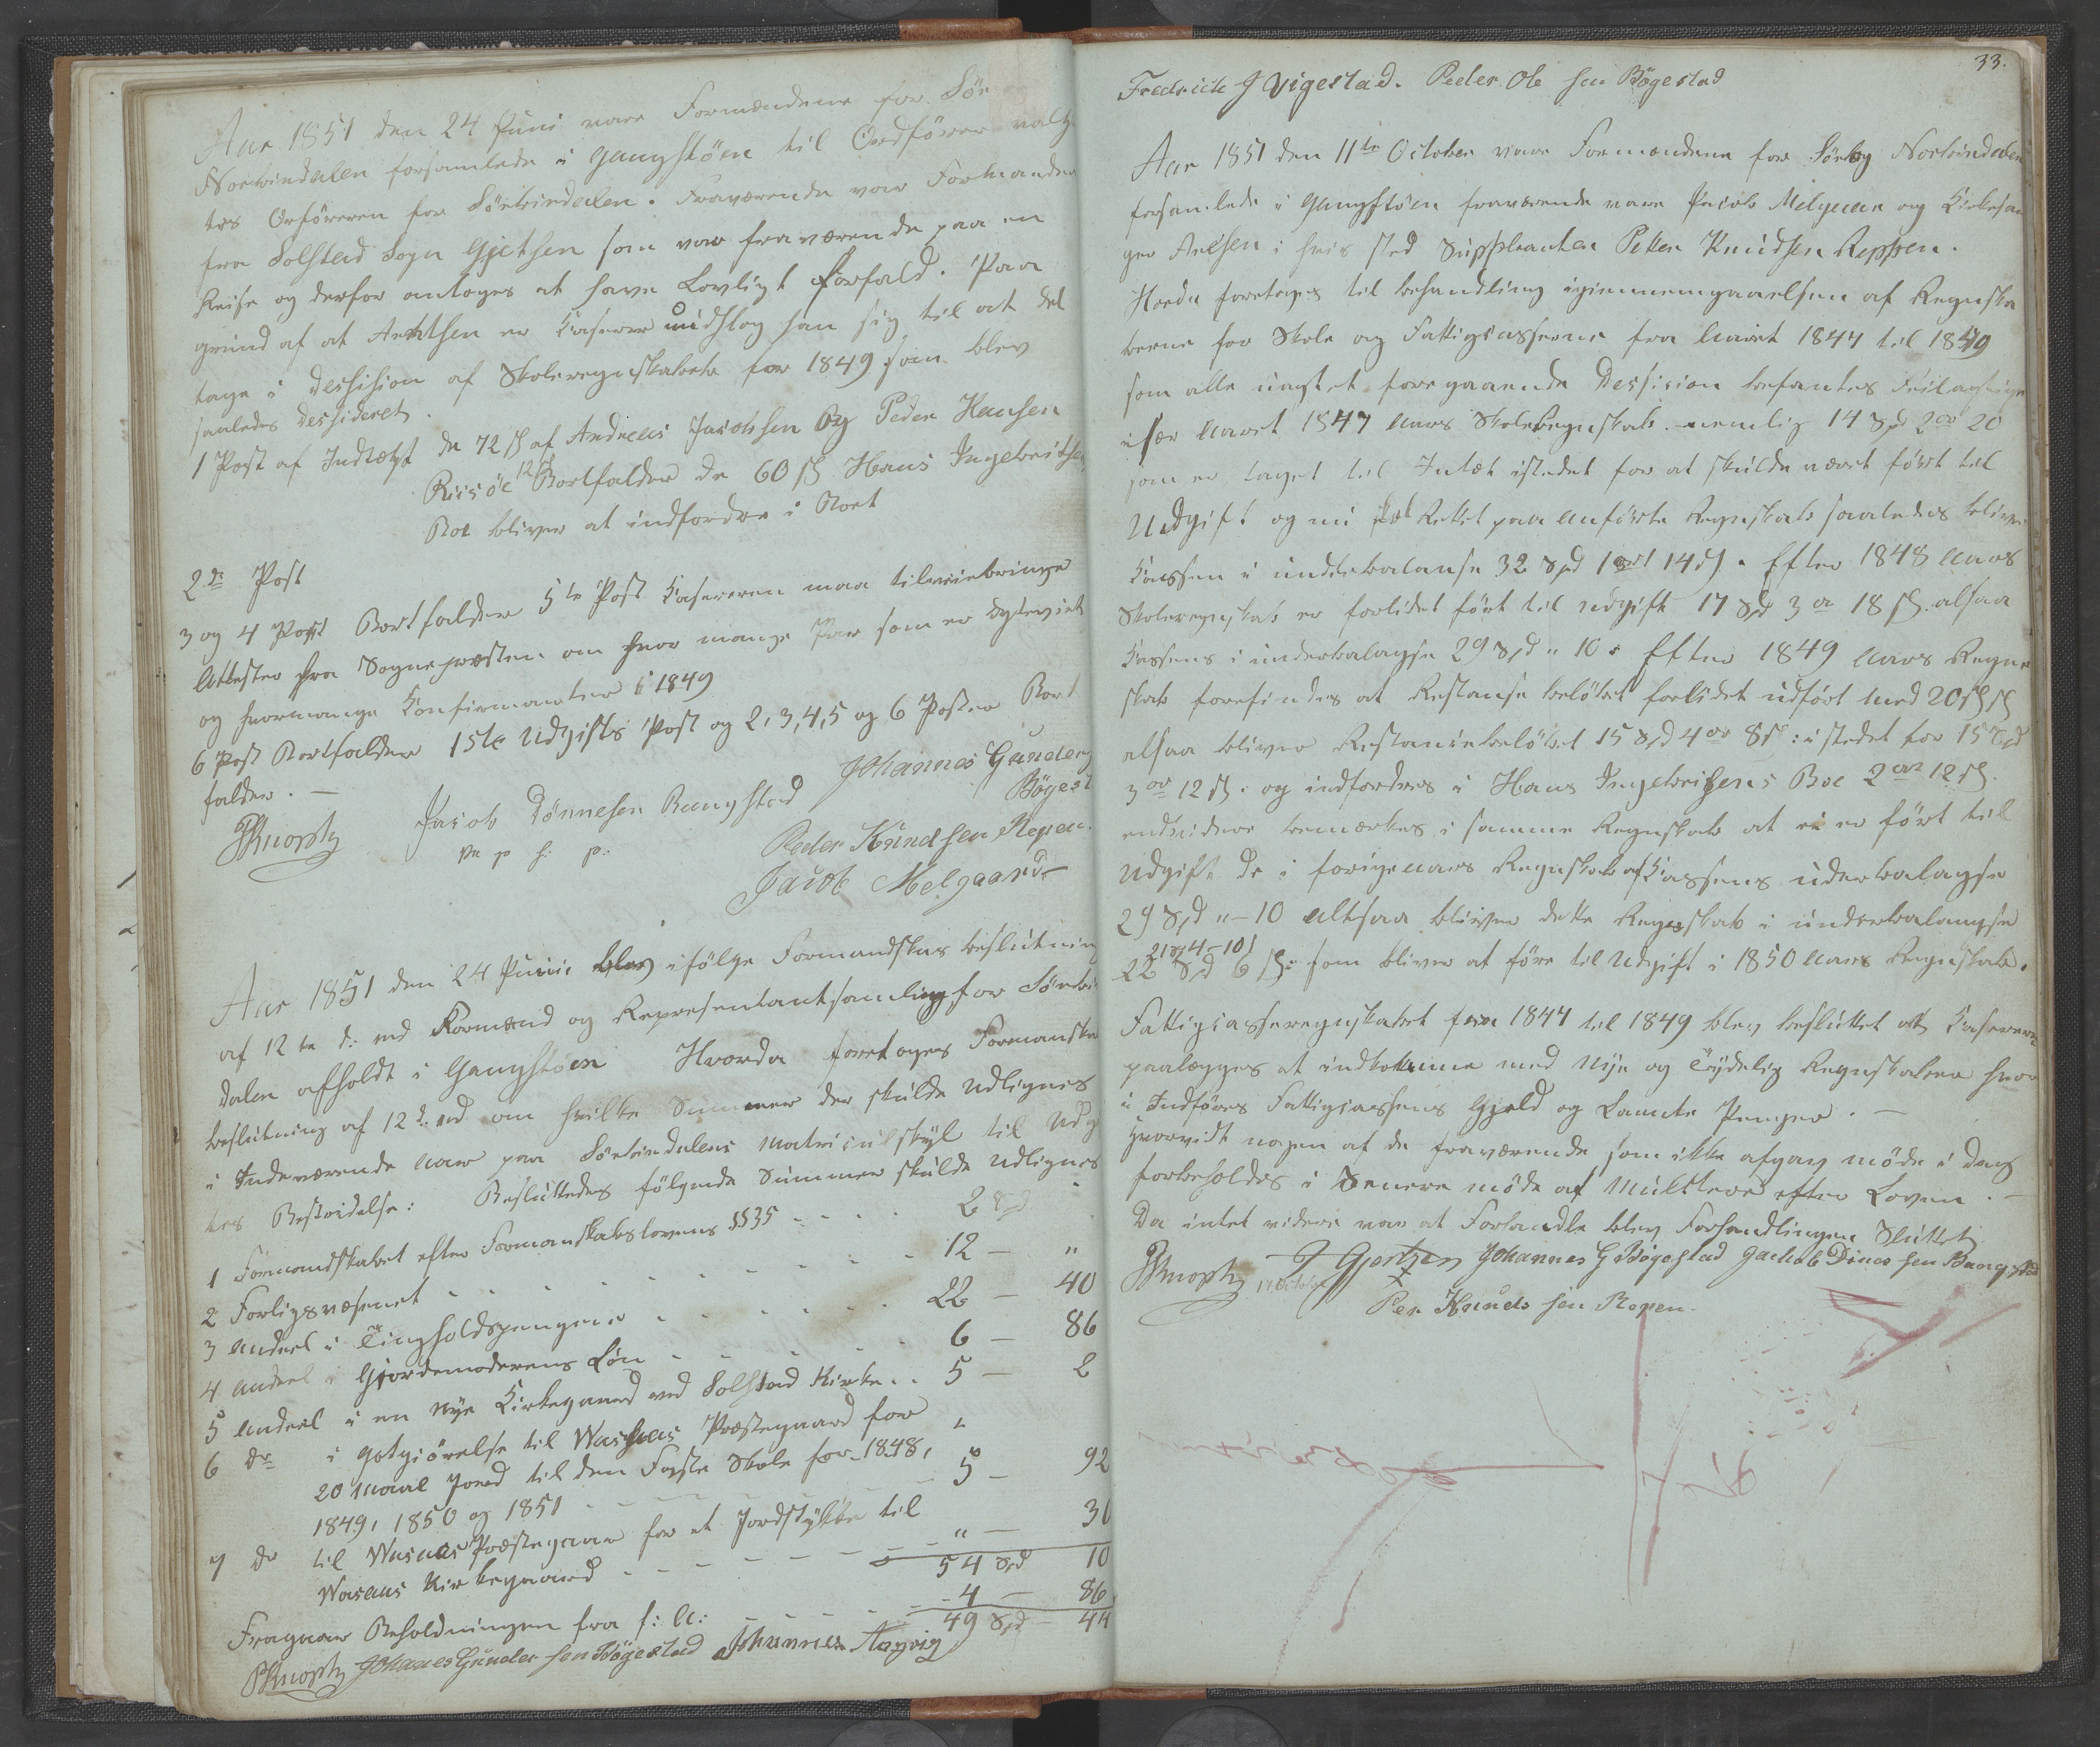 Aar 1851 den 24 Juni vare Formændene for Sør
Nordsindalen forsamlede i Gangstøen til Ordfører valg
tes Orføreren for Sørtsindalen. Fraværende var Formanden
fra Solstad Sogn Gjetsen som var fraværende paa en
Reise og derfor antoges at have Lovligt Forfald. Paa
grund af at Arntsen er Kaserer undslog han sig til at del
tage i Dessision af Skoleregnskabet for 1849 som blev
saaledes dessideret.
1 Post af Indtægt de 72 ß af Andreas Jacobsen og Peder Hansen
Riisøe 12 ß Bortfalder de 60 ß Hans Ingebritsen
Boe bliver at indfordre i Boet
2de Post
3 og 4 Post Bortfalder 5te Post Kasereren maa tilveiebringe
Attester fra Sognepræsten om hvor mange Par som er Egteviet
og hvormange Confirmanter i 1849
6 Post Bortfalder 1ste Udgifts Post og 2, 3, 4, 5 og 6 Poster Bort
falder. —
Johannes Gunders
Bögest
PKnoph Jacob Dønnesen Bangstad
m p h: p: Peder Knudsen Repen.
Jacob Melgaard
Aar 1851 den 24 Junii blev ifölge Formandskabs beslutning
af 12te d: md Formænd og Representantsamling for Sørtsin
dalen afholdt i Gangstøen Hvorda foretoges Formanska
beslutning af 12 d: md om hvilke Summer der skulde Udlignes
i Indeværende Aar paa Sørtsindalens Matriculskyl til Udg
tes Bestridelse: Besluttedes følgende Summer skulde Udlignes
1 Formandskabet efter Formanskabslovens §§35 - - - 2 Spd "
2 Forligsvæsenet - - - - - - - 12 — "
3 Andeel i Tingholdspengene - - - - - 22 — 40
4 Andeel i Gjordemoderens Løn - - - - - 6 — 86
5 Andeel i en Nye Kirkegaard ved Solstad Kirke - - 5 — 2
6 do i Gotgiørelse til Wasaas Præstegaard for
20 Maal Jord til den Faste Skole for 1848,
1849, 1850 og 1851 - - - - - 5 — 92
7 do til Wasaas Præstegaar for et Jordstykke til
Wasaas Kirkegaard - - - - - " — 30
54 Spd 10
Fragaar Beholdningen fra f: A: - - - - 4 — 86
49 Spd — 44
PKnoph Johanes Gunder sen Bögestad Johannes Aagvig
33.
Fredrick J Vigestad. Peder Ole sen Bögestad
Aar 1851 den 11te October vare Formændene for Sør og Nordsindalen
forsamlede i Gangstøen fraværende vare Jacob Melgaar og Kirkesan
ger Arntsen i hvis sted Suppleanten Petter Knudsen Reppen.
Hvorda foretoges til behandling igjennemgaaelsen af Regnska
berne for Skole og Fattigcasserne fra Aaret 1844 til 1849
som alle uagtet foregaaende Dessision befantes Feilagtige
især Aaret 1847 Aars Skoleregnskab. nemlig 14 Spd 2 or 20
som er taget til Intæt istedet for at skulde været ført til
Udgift og nu Rettet paa anførte Regnskab saaledes bliver
Kassen i underbalanse 32 Spd 1 ort 14 ß. Efter 1848 Aars
Skoleregnskab er forlidet ført til Udgift 17 Spd 3 or 18 ß. altsaa
Kassens i underbalagse 29 Spd " 10 ß Efter 1849 Aars Regn
skab forefindes at Restanse beløbet forlidet udført med 20 ß
altsaa bliver Restansebeløbet 15 Spd 4 or 8 ß: istedet for 15 Spd
3 or 12 ß. og indfordres i Hans Ingebritsens Boe 2 ort 12 ß.
endvidere bemærkes i samme Regnskab at ei er ført til
Udgift de i forige Aars Regnskab af Kassens underbalagse
29 Spd " — 10 altsaa bliver dette Regnskab i underbalangse
21 — 4 — 10
22 Spd 6 ß: som bliver at føre til Udgift i 1850 Aars Regnskab.
Fattigcasseregnskabet fra 1844 til 1849 blev besluttet at Kasereren
paalægges at indkomme med Nye og Tydelig Regnskaber hvor
i Indføres Fattigcassens Gjeld og Laante Penger. —
Hvorvidt nogen af de fraværende som ikke afgav møde i Dag
forbeholdes i Senere møde at Mulktere efter Loven. —
Da intet videre var at Forhandle blev Forhandlingen Sluttet
PKnoph 11 October J Gjertzen Johannes G Bögestad Jachob Dines sen Bangstad
Per Knuds sen Repen.